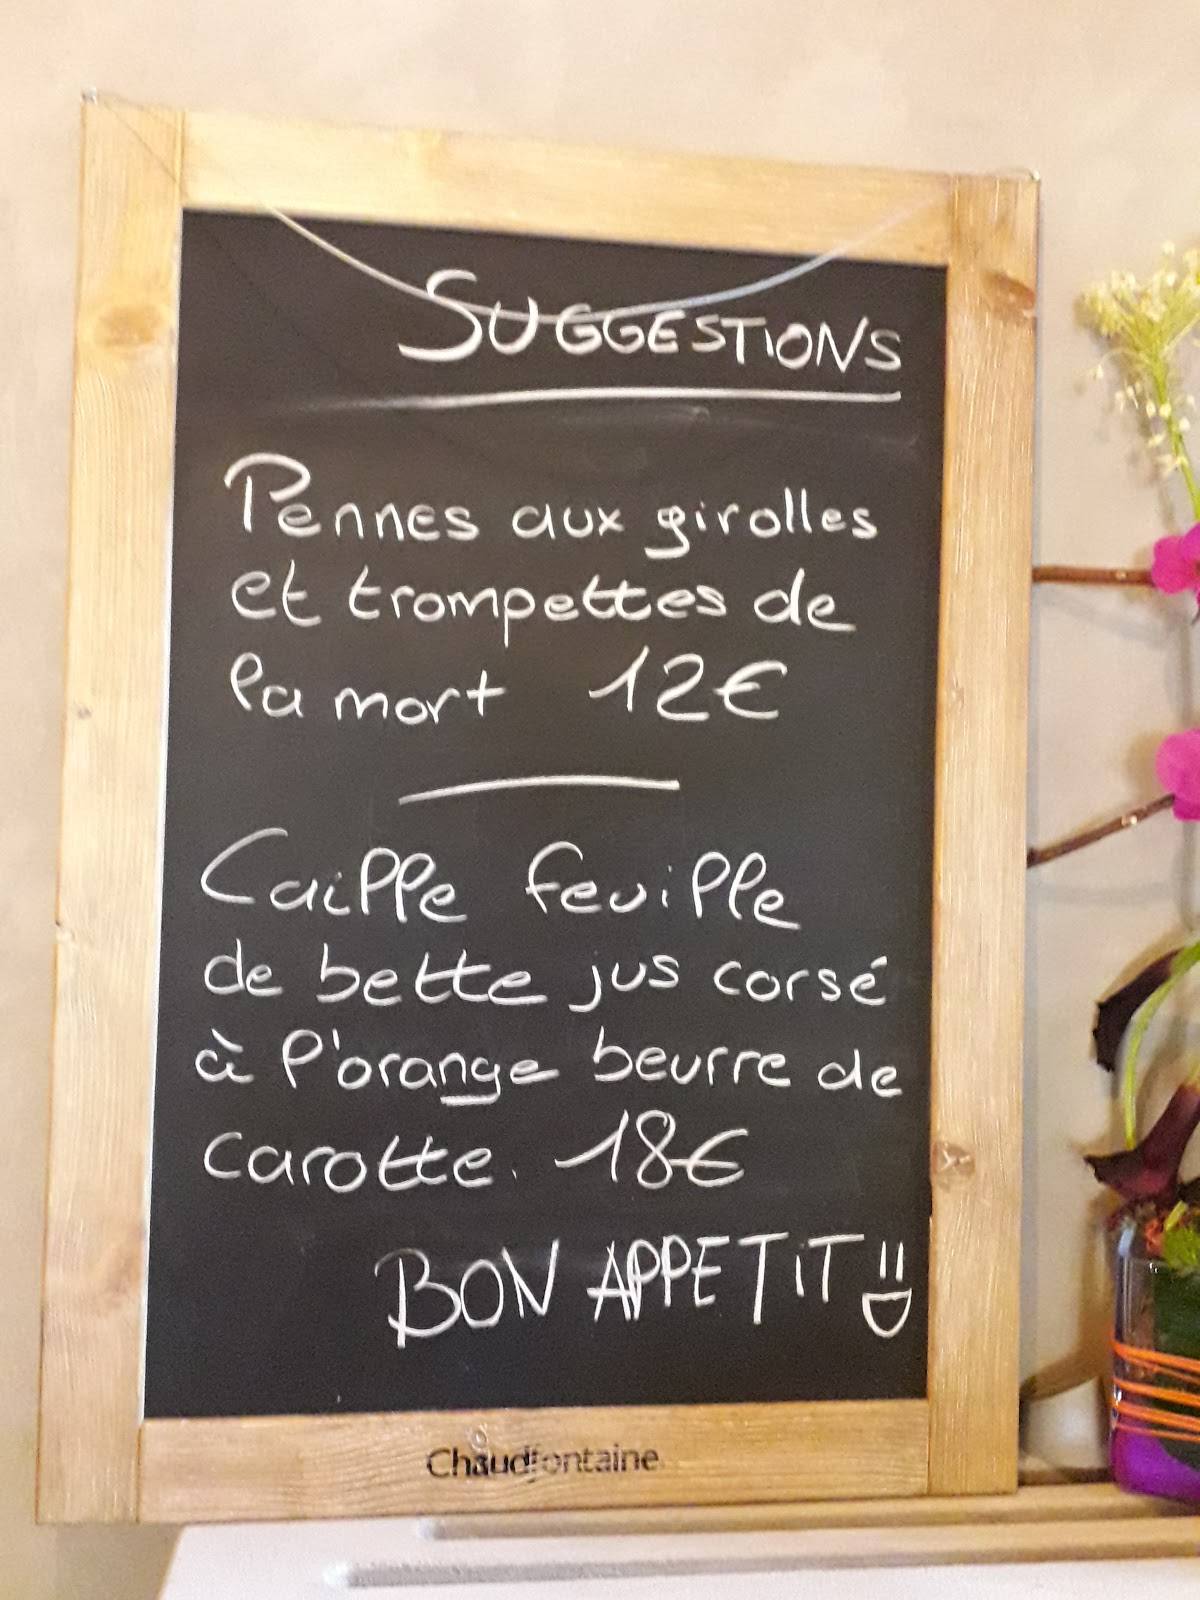 SUGGESTIONS
Pennes aux girolles
et trompettes de
la mort 12€
Caille feuille
de bette jus corsé
à l'orange beurre de
carotte. 18€
BON APPETiT
Chaudfontaine